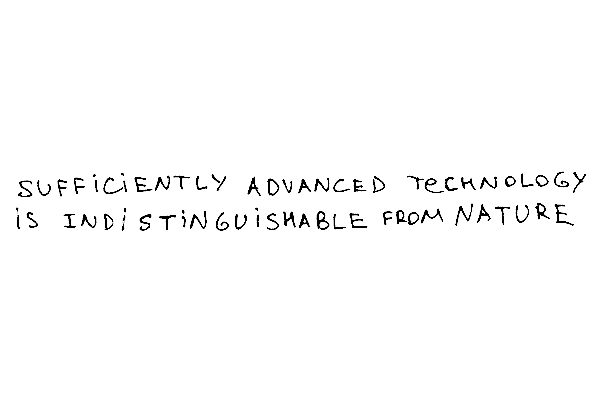 SUFFiCiENTLY ADVANCED TeCHNOLOGY
iS INDiSTiNGUiSHABLE FROM NATURE